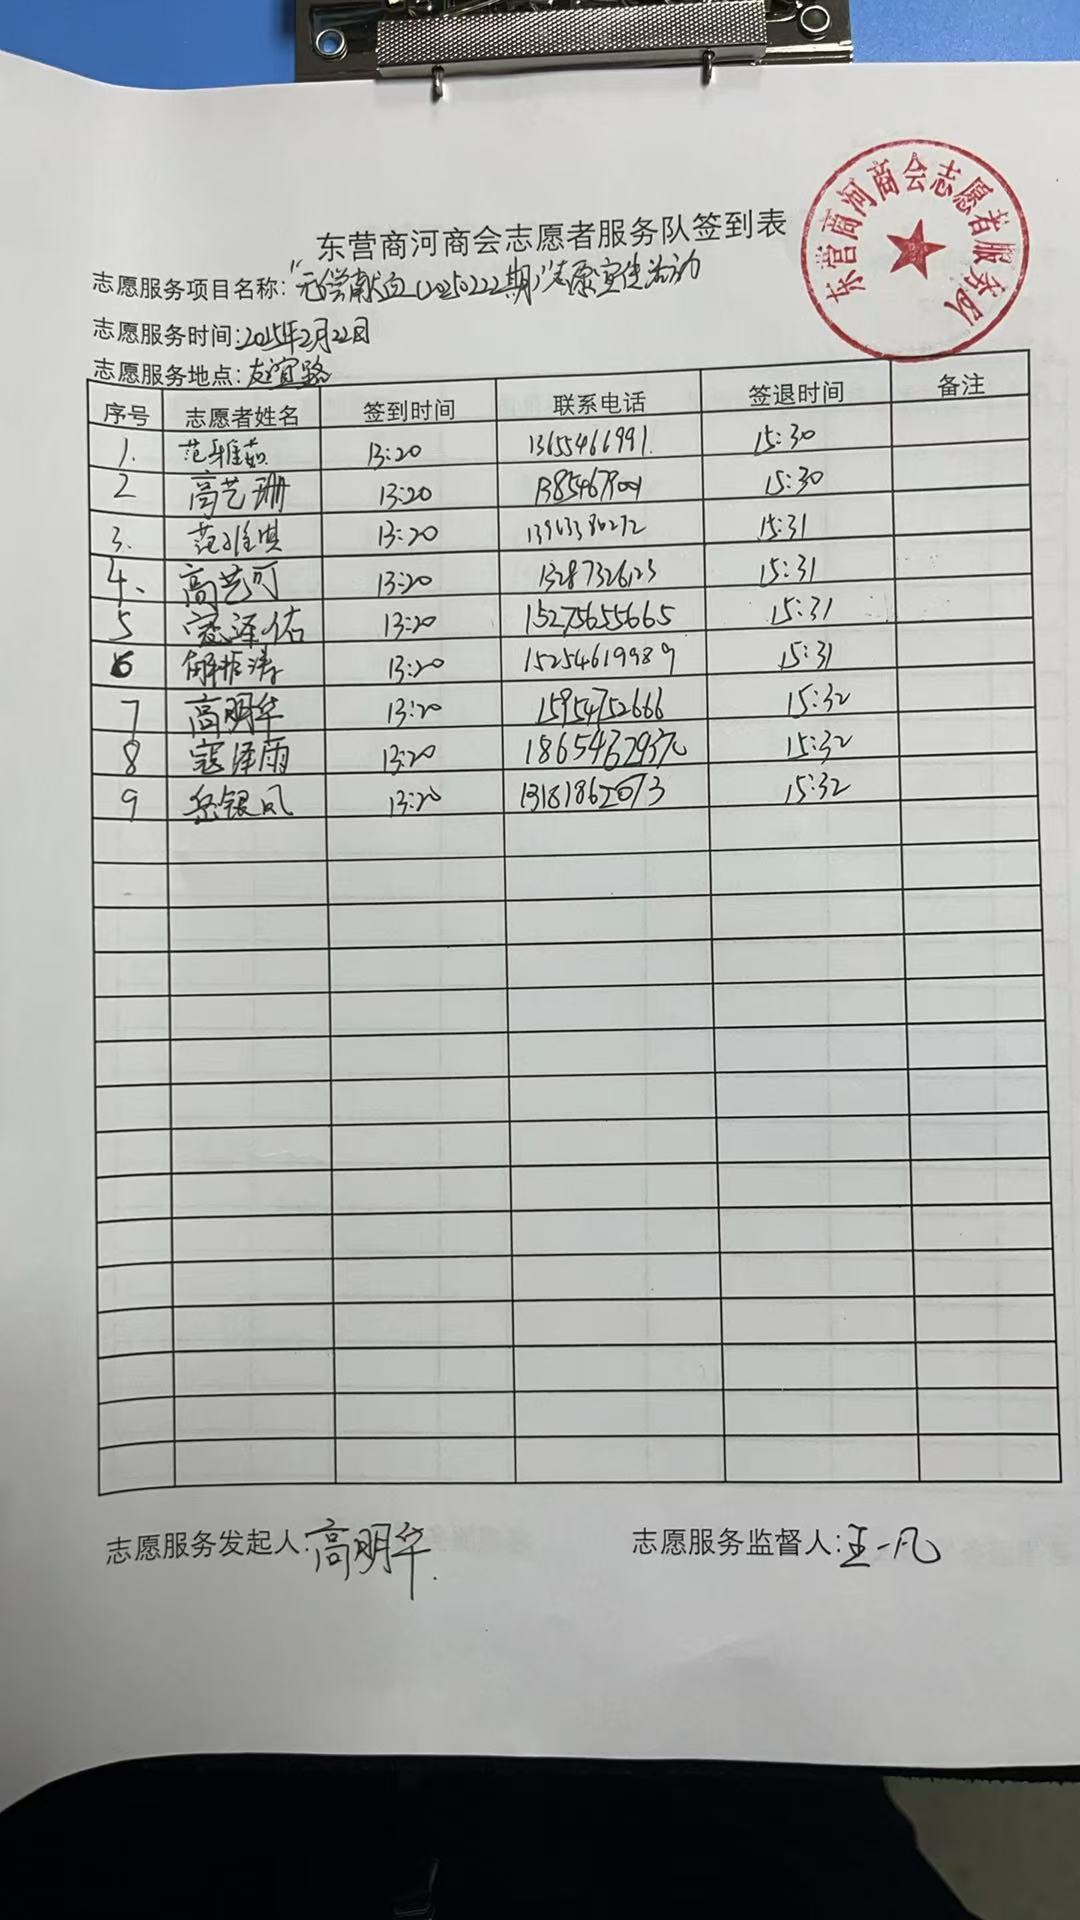 东营商河商会志愿者服务队
东营商河商会志愿者服务队签到表
志愿服务项目名称:"无偿献血(20250222期)"志愿宣传活动
志愿服务时间:2025年2月22日
志愿服务地点:友谊路
序号 志愿者姓名 签到时间 联系电话 签退时间 备注
1. 范雅茹 13:20 13655466991 15:30
2 高艺珊 13:20 15:30
3. 范雅琪 13:20 15:31
4、 高艺可 13:20 15:31
5 寇泽佑 13:20 15275655665 15:31
6 13:20 15254619989 15:31
7 高明华 13:20 15954752666 15:32
8 寇泽雨 13:20 15:32
9 岳银凤 13:20 13181862073 15:32
志愿服务发起人:高明华 志愿服务监督人:王一凡